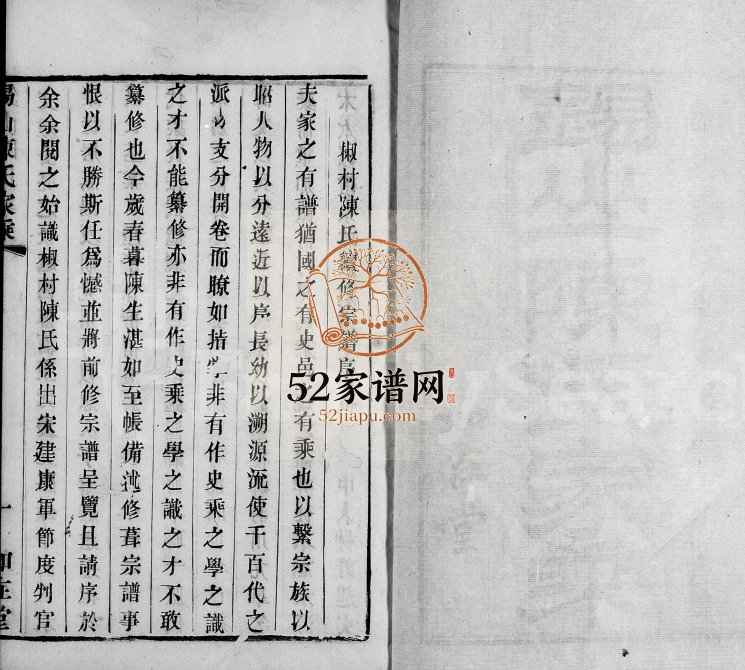 椒村陳氏續修宗譜序
夫家之有譜猶國之有史邑之有乘也以繫宗族以
昭人物以分遠近以序長幼以溯源流使千百代之
派支分開卷而瞭如指掌非有作史乘之學之識
之才不能纂修亦非有作史乘之學之識之才不敢
纂修也今歲春暮陳生湛如至帳備述修葺宗譜事
恨以不勝斯任爲憾並將前修宗譜呈覽且請序於
余余閱之始識椒村陳氏係出宋建康軍節度判官
陳氏家乘
一
52家谱网
52jiapu.com